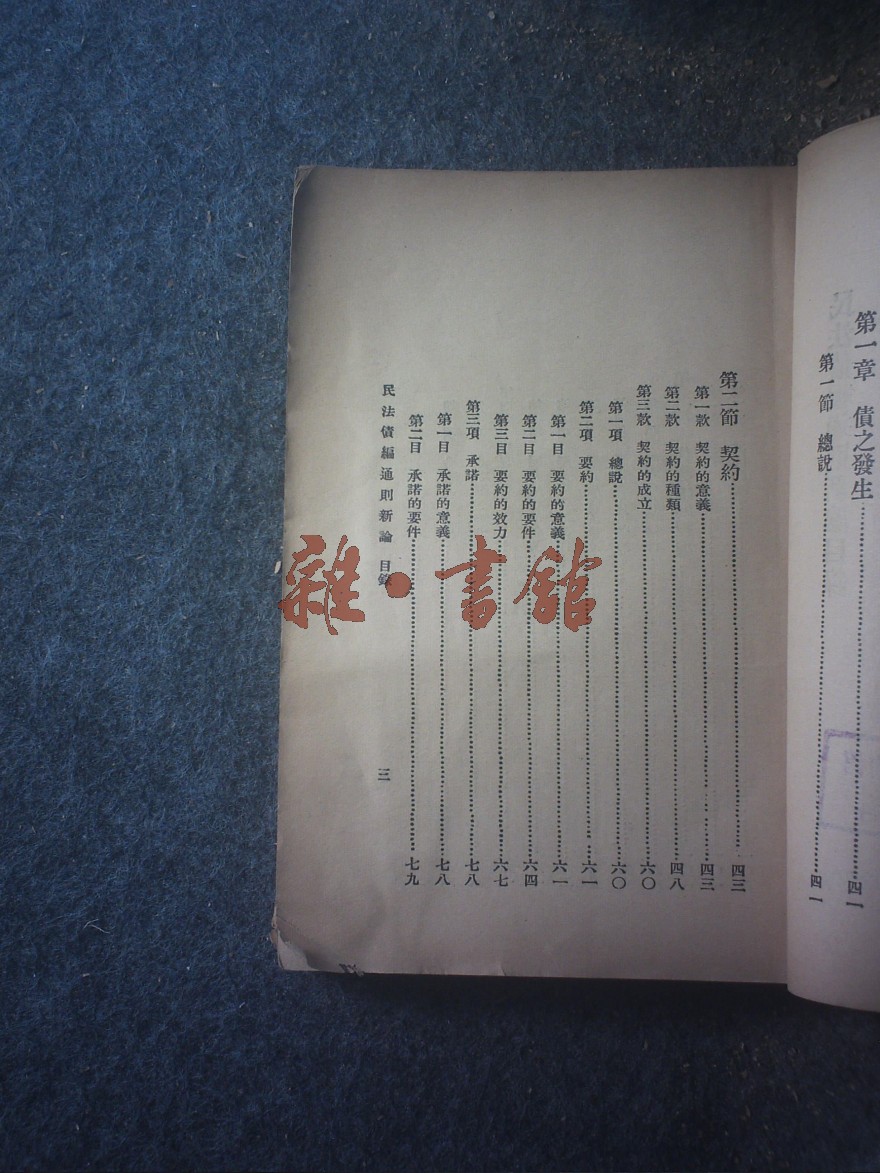 第一章 債之發生……四一
第一節 總說……四一
第二節 契約……四三
第一款 契約的意義……四三
第二款 契約的種類……四八
第三款 契約的成立……六〇
第一項 總說……六〇
第二項 要約……六一
第一目 要約的意義……六一
第二目 要約的要件……六四
第三目 要約的效力……六七
第三項 承諾……七八
第一目 承諾的意義……七八
第二目 承諾的要件……七九
民法債編通則新論 目錄 三
雜·書館